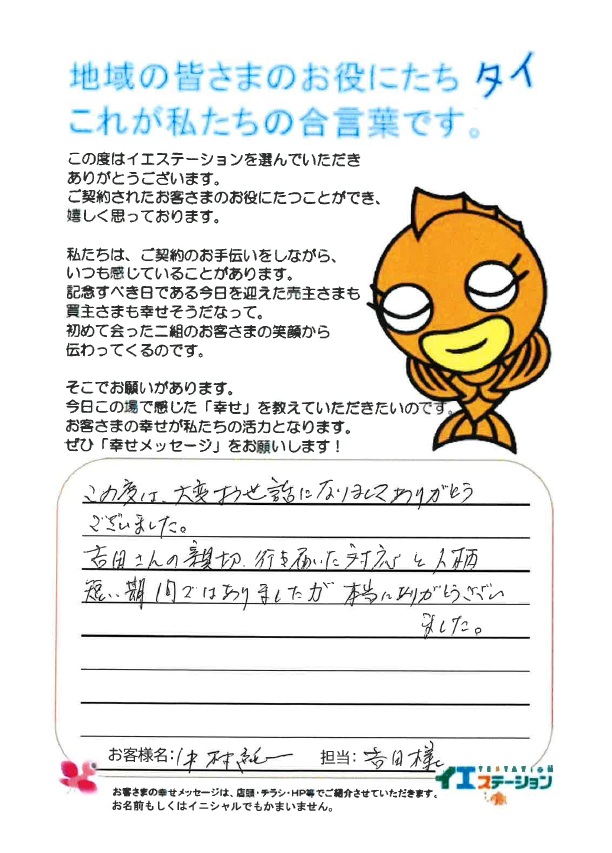 地域の皆さまのお役にたち タイ
これが私たちの合言葉です。
この度はイエステーションを選んでいただき
ありがとうございます。
ご契約されたお客さまのお役にたつことができ、
嬉しく思っております。
私たちは、ご契約のお手伝いをしながら、
いつも感じていることがあります。
記念すべき日である今日を迎えた売主さまも
買主さまも幸せそうだなって。
初めて会った二組のお客さまの笑顔から
伝わってくるのです。
そこでお願いがあります。
今日この場で感じた「幸せ」を教えていただきたいのです。
お客さまの幸せが私たちの活力となります。
ぜひ「幸せメッセージ」をお願いします！
この度は、大変お世話になりましてありがとう
ございました。
吉田さんの親切、行き届いた対応と人柄
短い期間ではありましたが 本当にありがとうござい
ました。
お客様名：中村 担当：吉田様
YESTATION
イエステーション
お客さまの幸せメッセージは、店頭・チラシ・HP等でご紹介させていただきます。
お名前もしくはイニシャルでもかまいません。